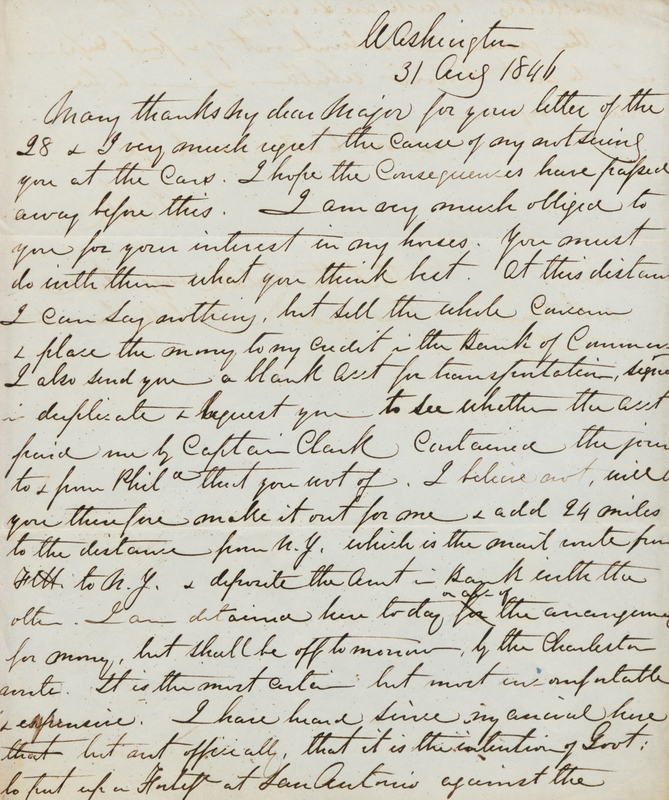 Washington
31 Aug 1846
Many thanks My dear Major for your letter of the
28 & I very much regret the cause of my not seeing
you at the Cars. I hope the Consequences have passed
away before this. I am very much obliged to
you for your interest in my horses. You must
do with them what you think best. At this distan
I can say nothing, but sell the whole Concern
& place the money to my credit in the Bank of Commer
I also send you a blank acct for transportation, signe
in duplicate & request you to see whether the acct
paid me by Captain Clark Contained the jour
to & from Phila that you wot of. I believe not, will
you therefore make it out for me & add 24 miles
to the distance from N.Y. which is the mail route from
to N.Y. & deposite the amt in Bank with the
other. I am detained here today on acct of the arrangeme
for money, but shall be off tomorrow, by the Charleston
route. It is the most certain but most uncomfortable
& expensive. I have heard since my arrival here
that but not officially, that it is the intention of Govt:
to put up a at San Antonio against the